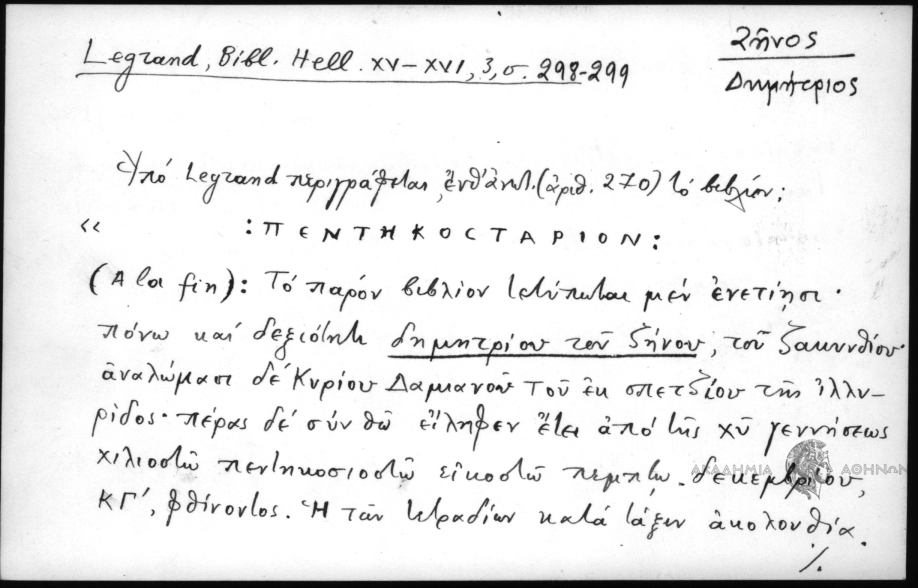 Legrand, Bibl. Hell. XV–XVI, 3, σ. 298-299
Ζῆνος
Δημήτριος
Ὑπό Legrand περιγράφεται, ἐνθ' ἀνωτ. (ἀριθ. 270) τό βιβλίον:
« :ΠΕΝΤΗΚΟCΤΑΡΙΟΝ:
(A la fin): Τό παρόν βιβλίον τετύπωται μέν ἐνετίησι·
πόνω καί δεξιότητι δημητρίου τοῦ ζήνου, τοῦ ζακυνθίου·
ἀναλώμασι δέ Κυρίου Δαμιανοῦ τοῦ ἐκ σπετζίου τῆς ἰλλυ-
ρίδος· πέρας δέ σύν θῶ εἴληφεν ἔτει ἀπό τῆς χῦ γεννήσεως
χιλιοστῶ πεντηκοσιοστῶ εἰκοστῶ πέμπτω. δεκεμβρίου,
ΚΓ', φθίνοντος. Ἡ τῶν τετραδίων κατά τάξιν ἀκολουθία.
./.
ΑΚΑΔΗΜΙΑ ΑΘΗΝΩΝ